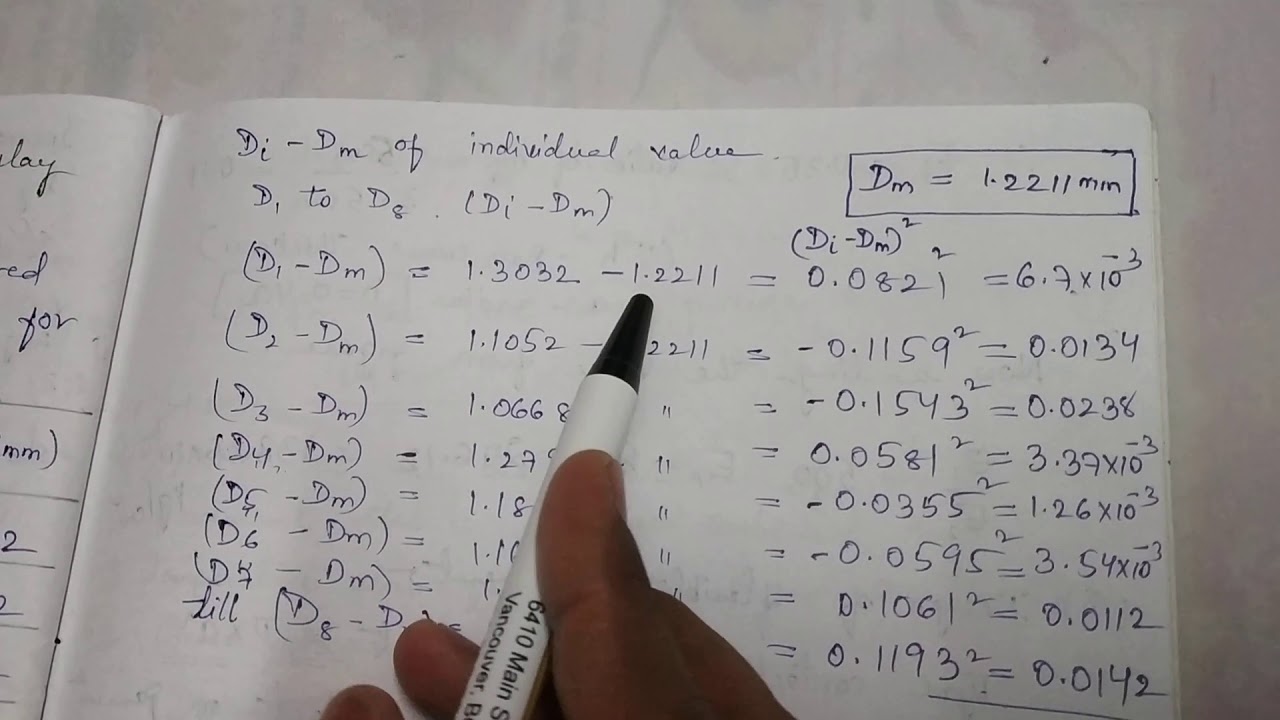 Di - Dm of individual value.
Dm = 1.2211 mm
D1 to D8. (Di - Dm)
(Di-Dm)²
(D1 - Dm) = 1.3032 - 1.2211 = 0.0821² = 6.7×10⁻³
(D2 - Dm) = 1.1052 - 2211 = -0.1159² = 0.0134
(D3 - Dm) = 1.0668 " = -0.1543² = 0.0238
(D4 - Dm) = 1.279 " = 0.0581² = 3.37×10⁻³
(D5 - Dm) = 1.18 " = -0.0355² = 1.26×10⁻³
(D6 - Dm) = " = -0.0595² = 3.54×10⁻³
(D7 - Dm) = 1. " = 0.1061² = 0.0112
till (D8 - D = 0.1193² = 0.0142
lay
ed
for
mm)
2
2
6410 Main S
Vancouver, B